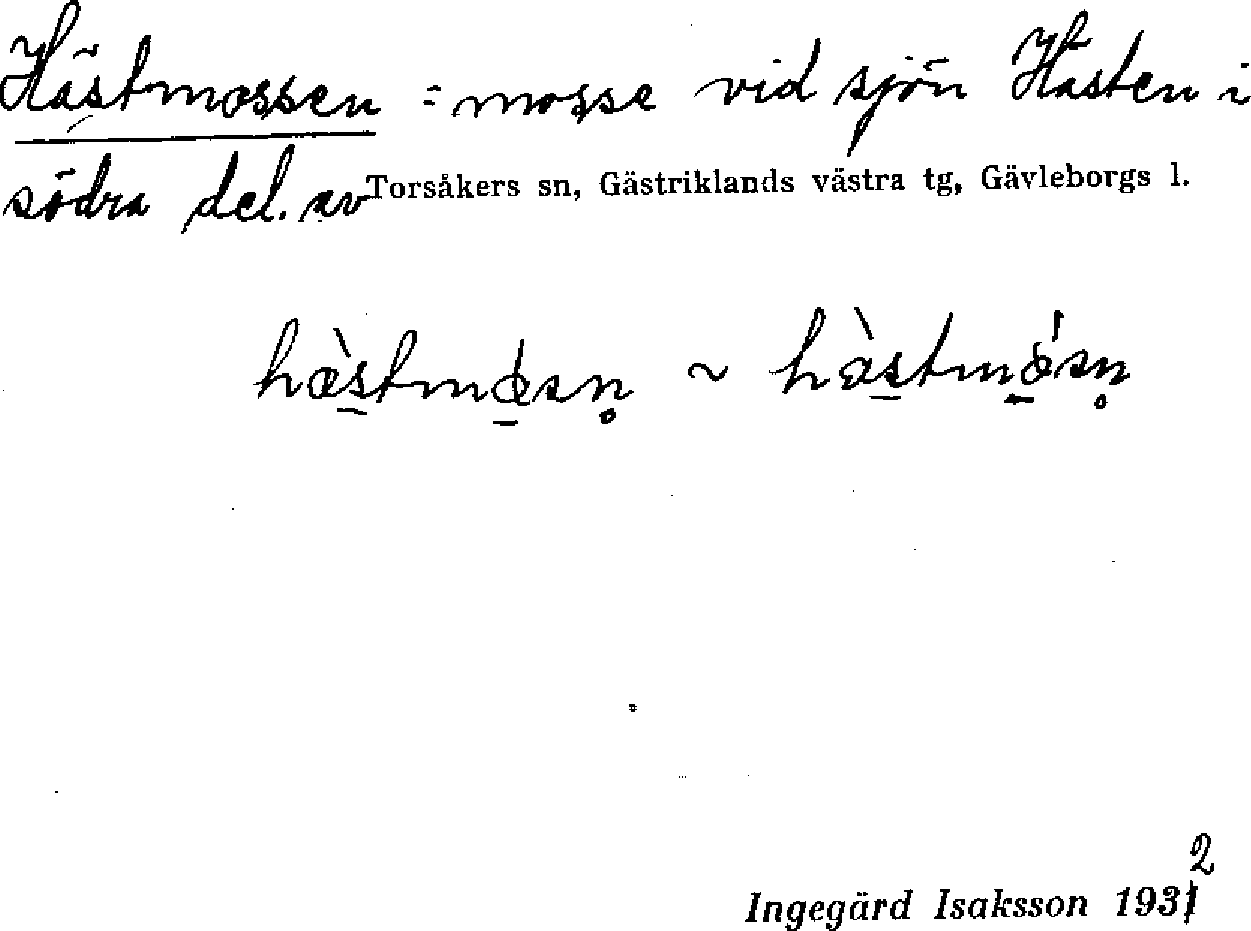 Hästmossen = mosse vid sjön Hästen i
södra del. av Torsåkers sn, Gästriklands västra tg, Gävleborgs l.
hæ̀stmòsn̥ ~ hæ̀stmósn̥
Ingegärd Isaksson 1932